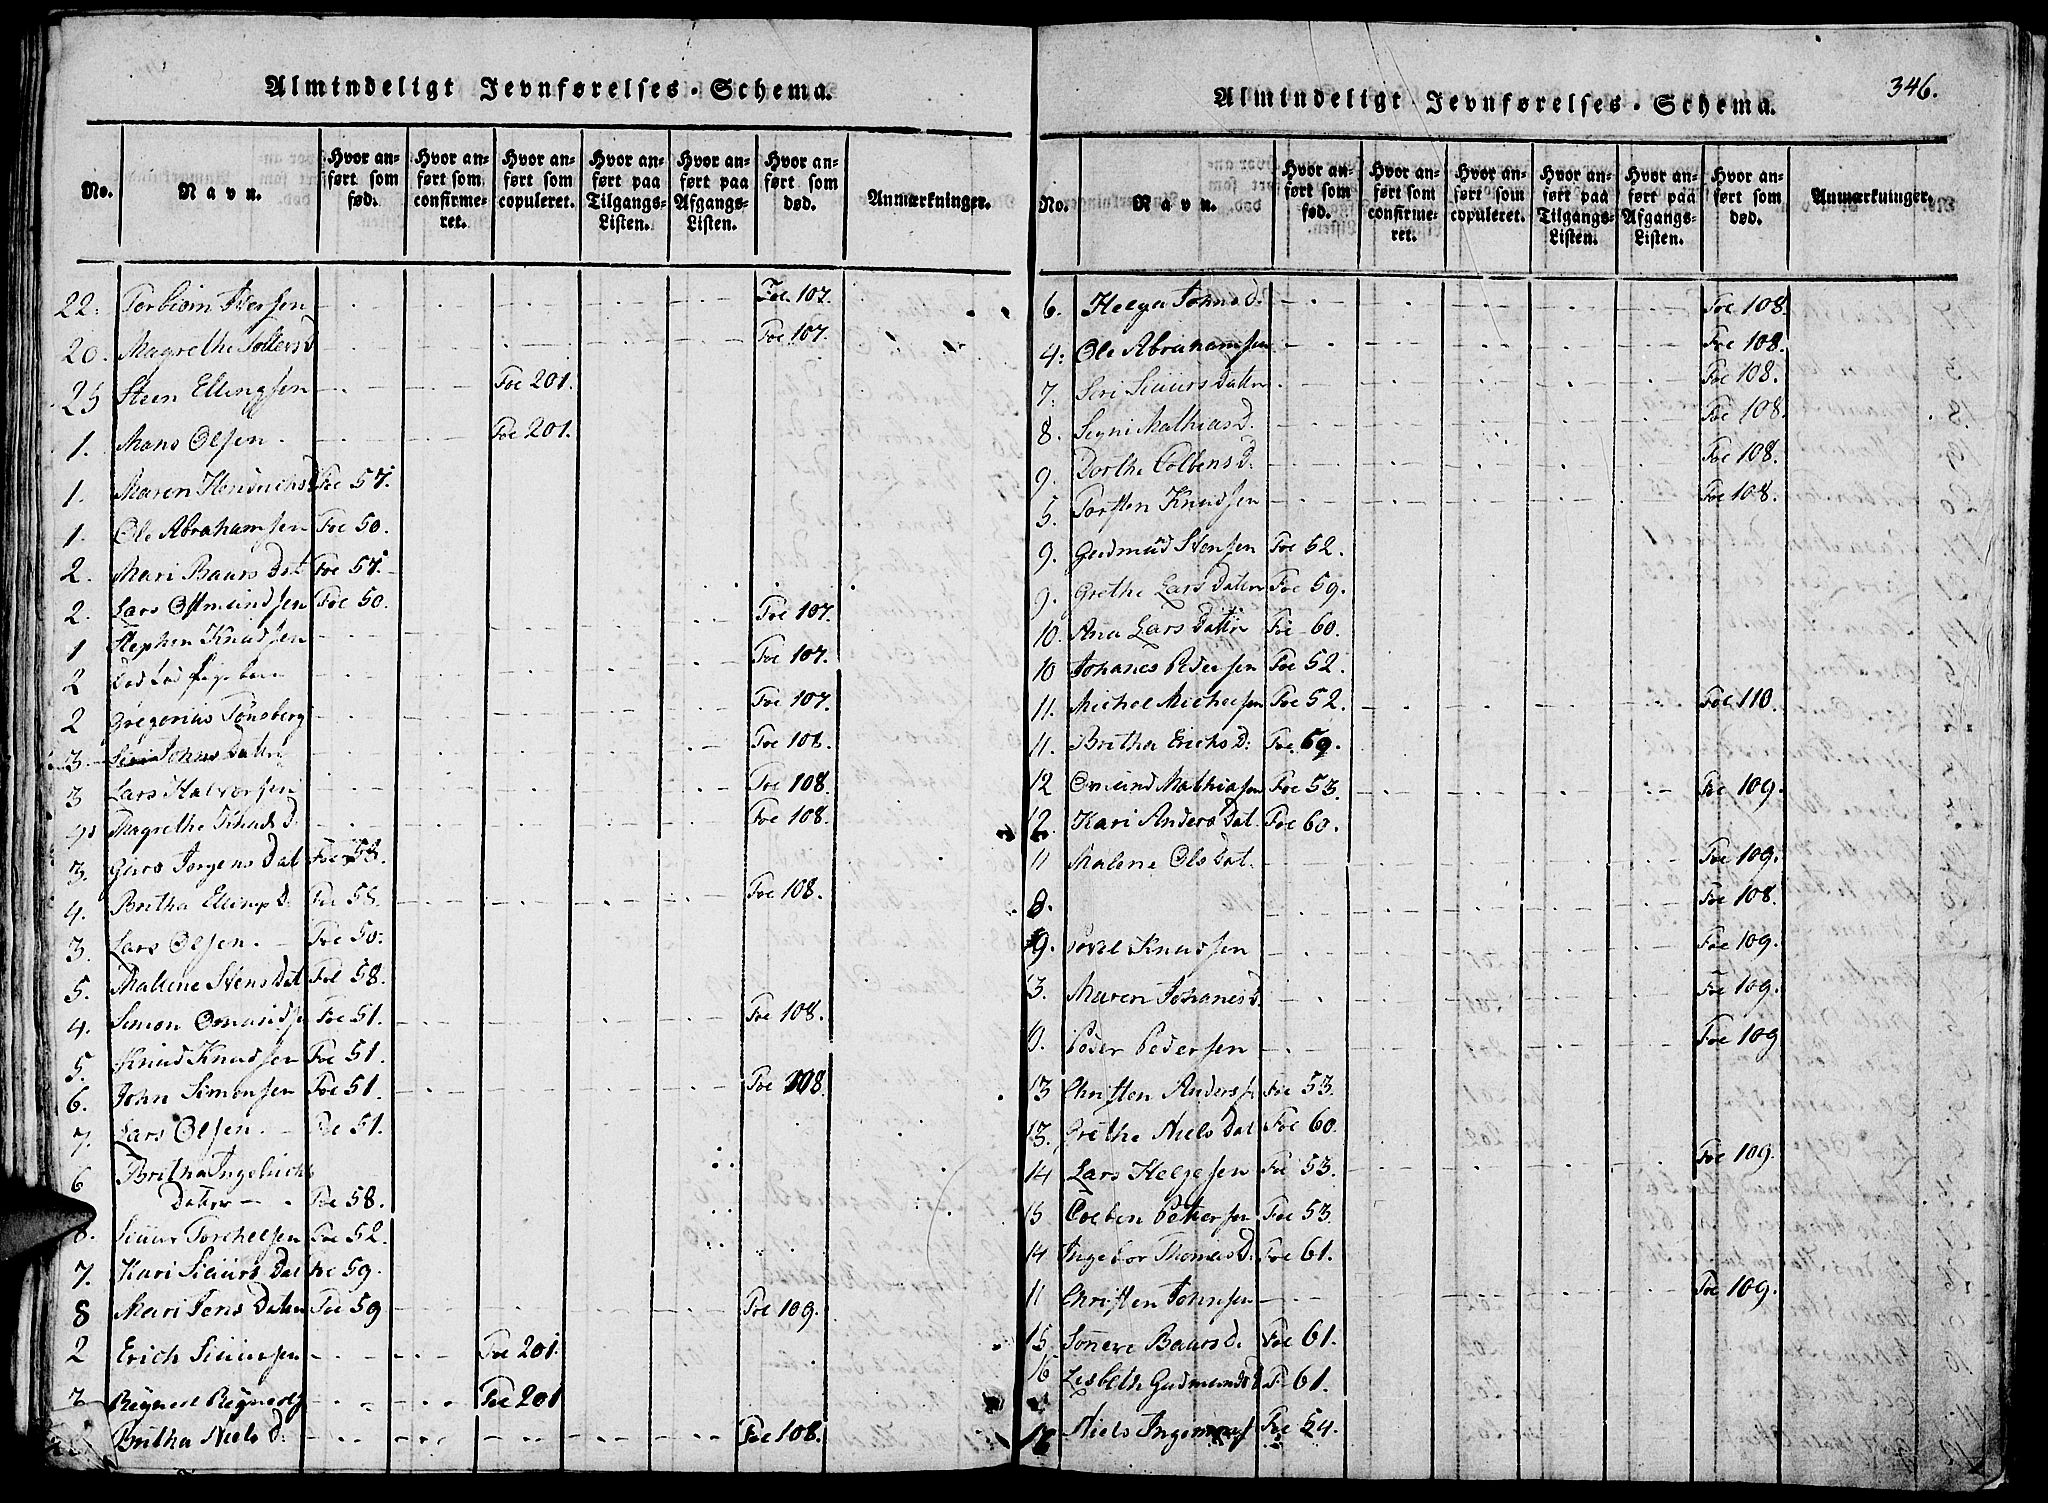 Almindeligt Jevnførelses-Schema.
No.
Navn.
Hvor an-
ført som
fød.
Hvor an-
ført som
confirme-
ret.
Hvor an-
ført som
copuleret.
Hvor an-
ført paa
Tilgangs-
Listen.
Hvor an-
ført paa
Afgangs-
Listen.
Hvor an-
ført som
død.
Anmærkninger.
22. Torbiörn Iversen Foe. 107.
20. Magrethe Tollers D Foe 107.
25 Steen Ellingsen Foe 201.
1. Mans Olsen. Foe 201.
1. Maren Hendrichs D Foe 57.
1. Ole Abrahamsen Foe 50.
2. Mari Baurs Dat Foe 57.
2. Lars Osmundsen Foe 50.
1 Stephen Knudsen Foe 107.
2 Foe 107.
2 Gregorius Tönsberg Foe 107.
3. Siri Johns Datter Foe 108.
3 Lars Halvorsen Foe 108.
Magrethe Knuds D. Foe 108.
3. Guro Jorgens Dat Foe 58.
4. Britha Ellings D. Foe 58. Foe 108.
3. Lars Olsen. Foe 50.
5. Malene Stens Dat Foe 58.
4. Simon Omunds Foe 51. Foe 108.
5. Knud Knudsen Foe 51.
6. John Simonsen Foe 51. Foe 108.
7. Lars Olsen. Foe 51.
6 Britha Ingebrichts
Datter Foe 58.
8. Siuur Torchelsen Foe 52.
7. Kari Siuurs Dat Foe 59.
8 Mari Jens Datter Foe 59 Foe 109.
2 Erich Siuursen Foe 201.
Reynert Reynerts Foe 201
Britha Niels D. Foe 108.
346.
Almindeligt Jevnførelses-Schema.
No.
Navn.
Hvor an-
ført som
fød.
Hvor an-
ført som
confirme-
ret.
Hvor an-
ført som
copuleret.
Hvor an-
ført paa
Tilgangs-
Listen.
Hvor an-
ført paa
Afgangs-
Listen.
Hvor an-
ført som
død.
Anmærkninger.
6. Helga Johns d. Foe 108.
4. Ole Abrahamsen Foe 108.
7. Siri Siuurs Datter Foe 108.
8. Signi Mathias D. Foe 108.
9. Dorthe Colbens D. Foe 108.
5. Torsten Knudsen Foe 108.
9. Gudmud Stensen Foe 52.
9. Grethe Lars Datter Foe 59.
10. Ana Lars Datter Foe 60.
10 Johanes Pedersen Foe 52.
11. Michel Michelsen Foe 52. Foe 110.
11. Britha Erichs D: Foe. 69.
12 Omund Mathiasen Foe 53. Foe 109.
12. Kari Anders Dat. Foe 60.
11 Malene Ols Dat. Foe 109.
8. Foe 108.
9. Povel Knudsen Foe 109.
13. Maren Johanes d. Foe 109.
Peder Pedersen Foe 109
13 Christen Anders Foe 53.
13. Grethe Niels Dat Foe 60.
14 Lars Helgesen Foe 53. Foe 109.
15 Colben Petersen Foe 53.
14 Ingebor Thomas D. Foe 61.
11 Christen Johnsen Foe 109.
15 Sonneve Baurs d. Foe 61.
16 Lisbeth Gudmunds D F 61.
16 Niels Foe 54.